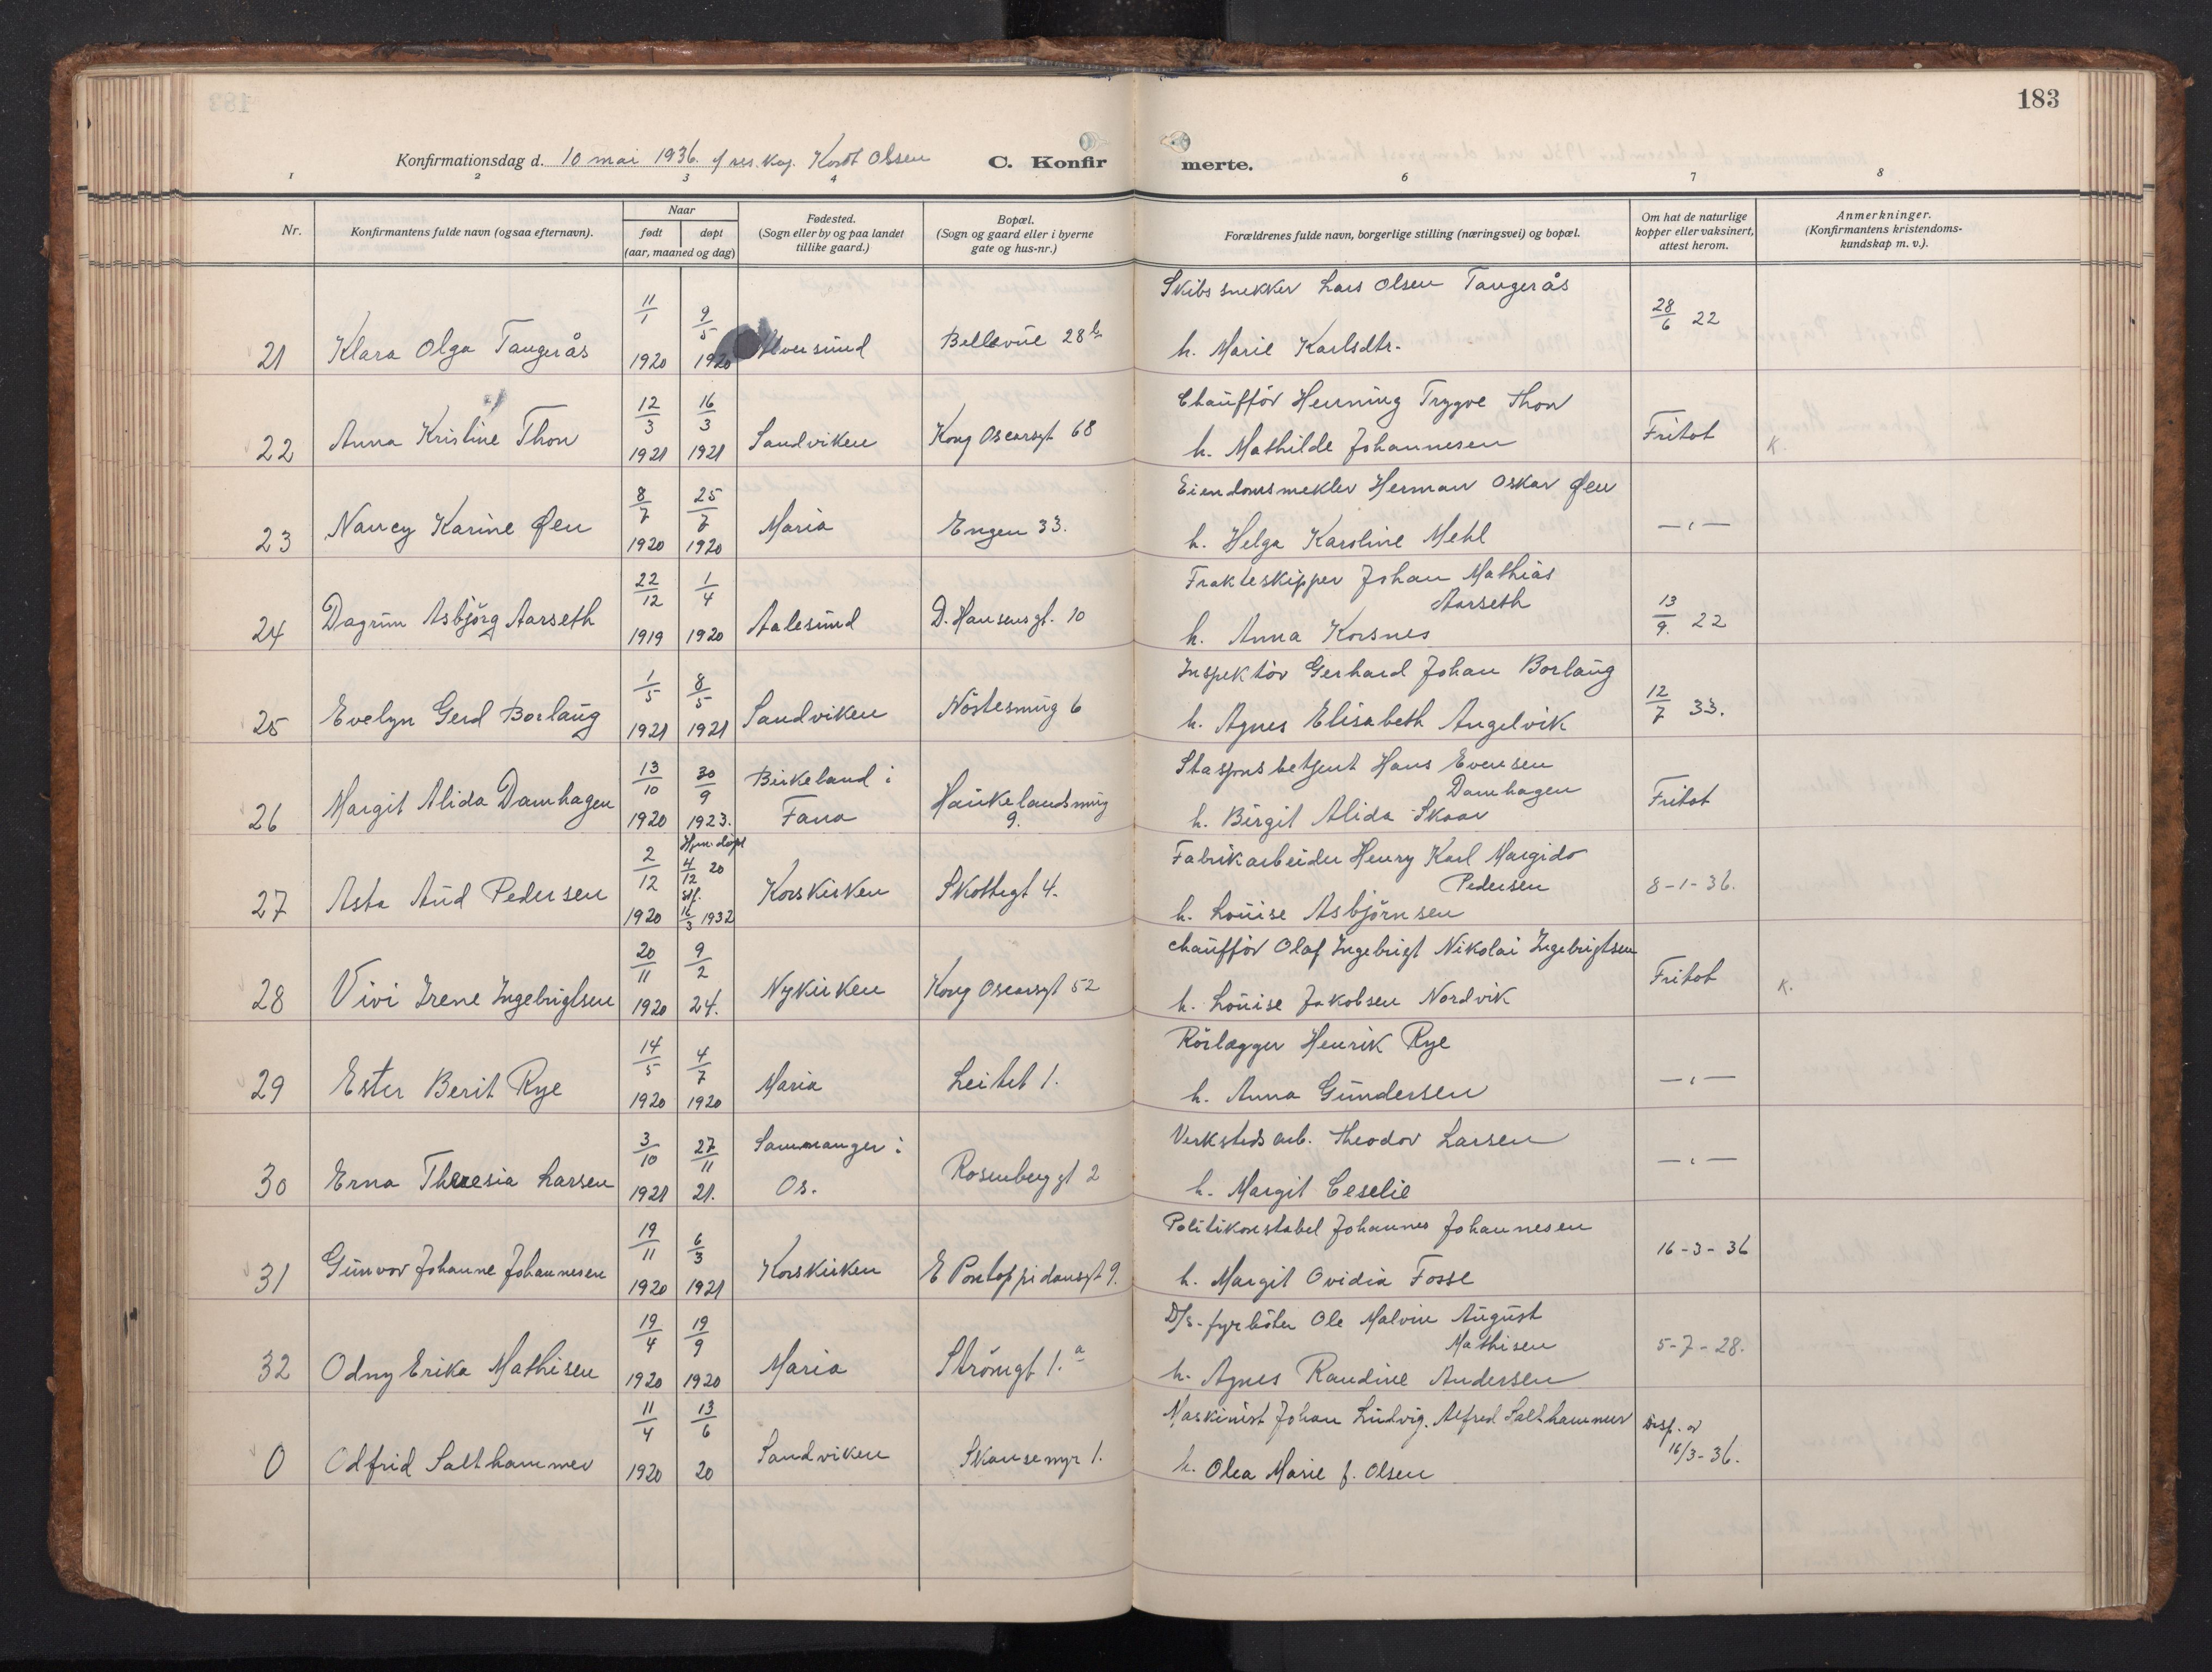 183
Konfirmationsdag d. 10 mai 1936 v/ res. kap. Kordt Olsen
C. Konfir merte.
1 2 3 4 6 7 8
Nr.
Konfirmantens fulde navn (ogsaa efternavn).
Naar
født døpt
(aar, maaned og dag)
Fødested.
(Sogn eller by og paa landet
tillike gaard.)
Bopæl.
(Sogn og gaard eller i byerne
gate og hus-nr.)
Forældrenes fulde navn, borgerlige stilling (næringsvei) og bopæl.
Om hat de naturlige
kopper eller vaksinert,
attest herom.
Anmerkninger.
(Konfirmantens kristendoms-
kundskap m. v.).
21 Klara Olga Tangerås 11/1 1920 9/5 1920 Alversund Bellevüe 28b
Skibssnekker Lars Olsen Tangerås
h. Marie Karlsdtr. 28/6 22
22 Anna Kristine Thon 12/3 1921 16/3 1921 Sandviken Kong Oscarsgt 68
Chaufför Henning Trygve Thon
h. Mathilde Johannesen Fritat K.
23 Nancy Karine Øen 8/7 1920 25/7 1920 Maria Engen 33.
Eiendomsmekler Herman Oskar Øen
h. Helga Karoline Mehl —"—
24 Dagrun Asbjörg Aarseth 22/12 1919 1/4 1920 Aalesund D. Hansensgt. 10
Frakteskipper Johan Mathias
Aarseth
h. Anna Korsnes 13/9. 22
25 Evelyn Gerd Borlaug 1/5 1921 8/5 1921 Sandviken Nöstesmug 6
Inspektör Gerhard Johan Borlaug
h. Agnes Elisabeth Angelvik 12/7 33.
26 Margit Alida Damhagen 13/10 1920 30/9 1923. Birkeland i
Fana
Haukelandsmug
9.
Stasjonsbetjent Hans Evensen
Damhagen
h. Birgit Alida Skaar Fritat
27 Asta Aud Pedersen 2/12 1920 Hjm. döpt
4/12 20
Stf.
16/3 1932 Korskirken Skottegt 4.
Fabrikarbeider Henry Karl Margido
Pedersen
h. Louise Asbjörnsen 8-1-36.
28 Vivi Irene Ingebrigtsen 20/11 1920 9/2 24. Nykirken Kong Oscarsgt 52
Chaufför Olaf Ingebrigt Nikolai Ingebrigtsen
h. Louise Jakobsen Nordvik Fritat K.
29 Ester Berit Rye 14/5 1920 4/7 1920 Maria Leitet 1.
Rörlægger Henrik Rye
h. Anna Gundersen —"—
30 Erna Theresia Larsen 3/10 1921 27/11 21. Sammanger i
Os.
Rosenberggt 2
Verkstedsarb. Theodor Larsen
h. Margit Ceselie —"—
31 Gunvor Johanne Johannesen 19/11 1920 6/3 1921 Korskirken E Pontoppidansgt 9.
Politikonstabel Johannes Johannesen
h. Margit Ovidia Fosse 16-3-36
32 Odny Erika Mathisen 19/4 1920 19/9 1920 Maria Strömgt 1.a
D/s-fyrböter Ole Malvin August
Mathisen
h. Agnes Randine Andersen 5-7-28.
0 Odfrid Salthammer 11/4 1920 13/6 20 Sandviken Skansemyr 1.
Maskinist Johan Ludvig Alfred Salthammer
h. Olea Marie f. Olsen
Disp. av
16/3-36.